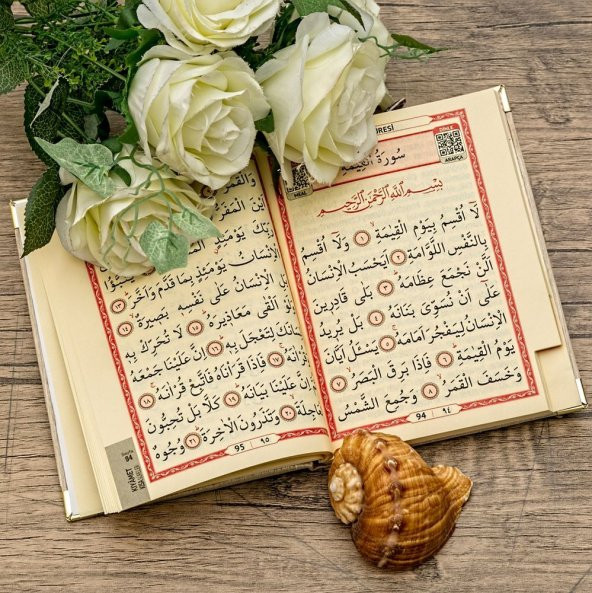 سُورَةُ الْقِيٰمَةِ
ARAPÇA
MEAL
بِسْمِ اللّٰهِ الرَّحْمٰنِ الرَّحٖيمِ
لَٓا اُقْسِمُ بِيَوْمِ الْقِيٰمَةِ ﴿١﴾ وَلَٓا اُقْسِمُ
بِالنَّفْسِ اللَّوَّامَةِ ﴿٢﴾ اَيَحْسَبُ الْاِنْسَانُ
اَلَّنْ نَجْمَعَ عِظَامَهُ ﴿٣﴾ بَلٰى قَادِرٖينَ
عَلٰٓى اَنْ نُسَوِّيَ بَنَانَهُ ﴿٤﴾ بَلْ يُرٖيدُ
الْاِنْسَانُ لِيَفْجُرَ اَمَامَهُ ﴿٥﴾ يَسْـَٔلُ اَيَّانَ
يَوْمُ الْقِيٰمَةِ ﴿٦﴾ فَاِذَا بَرِقَ الْبَصَرُ ﴿٧﴾
وَخَسَفَ الْقَمَرُ ﴿٨﴾ وَجُمِعَ الشَّمْسُ
94 ٩٤
وَالْقَمَرُ
اَيْنَ الْمَفَرُّ
يَوْمَئِذٍ
الْاِنْسَانُ يَوْمَئِذٍ بِمَا قَدَّمَ وَاَخَّرَ ﴿١٣﴾
الْاِنْسَانُ عَلٰى نَفْسِهٖ بَصٖيرَةٌ ﴿١٤﴾
اَلْقٰى مَعَاذٖيرَهُ ﴿١٥﴾ لَا تُحَرِّكْ بِهٖ
لِتَعْجَلَ بِهٖ ﴿١٦﴾ اِنَّ عَلَيْنَا جَمْعَهُ
﴿١٧﴾ فَاِذَا قَرَاْنَاهُ فَاتَّبِعْ قُرْاٰنَهُ ﴿١٨﴾
اِنَّ عَلَيْنَا بَيَانَهُ ﴿١٩﴾ كَلَّا بَلْ تُحِبُّونَ
﴿٢٠﴾ وَتَذَرُونَ الْاٰخِرَةَ ﴿٢١﴾ وُجُوهٌ
95 ٩٥
94
KIYÂMET